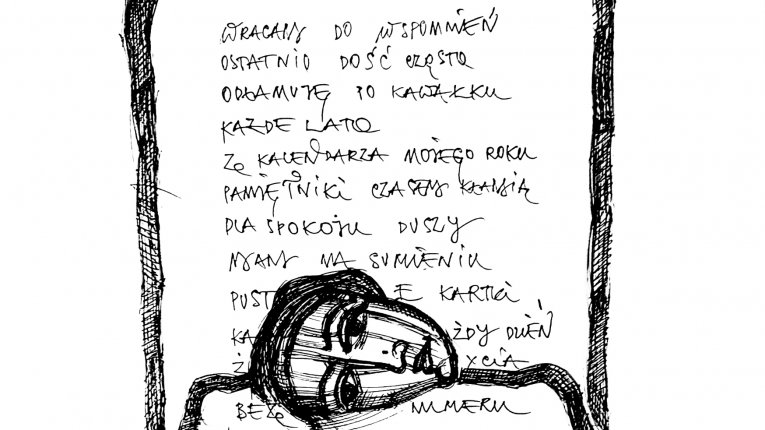 WRACAM DO WSPOMNIEŃ
OSTATNIO DOŚĆ CZĘSTO
ODŁAMUJĘ PO KAWAŁKU
KAŻDE LATO
ZE KALENDARZA MOJEGO ROKU
PAMIĘTNIKI CZASEM KŁAMIĄ
DLA SPOKOJU DUSZY
MAM NA SUMIENIU
PUST E KARTKI
KA ŻDY DZIEŃ
Ż YCIA
BEZ NUMERU